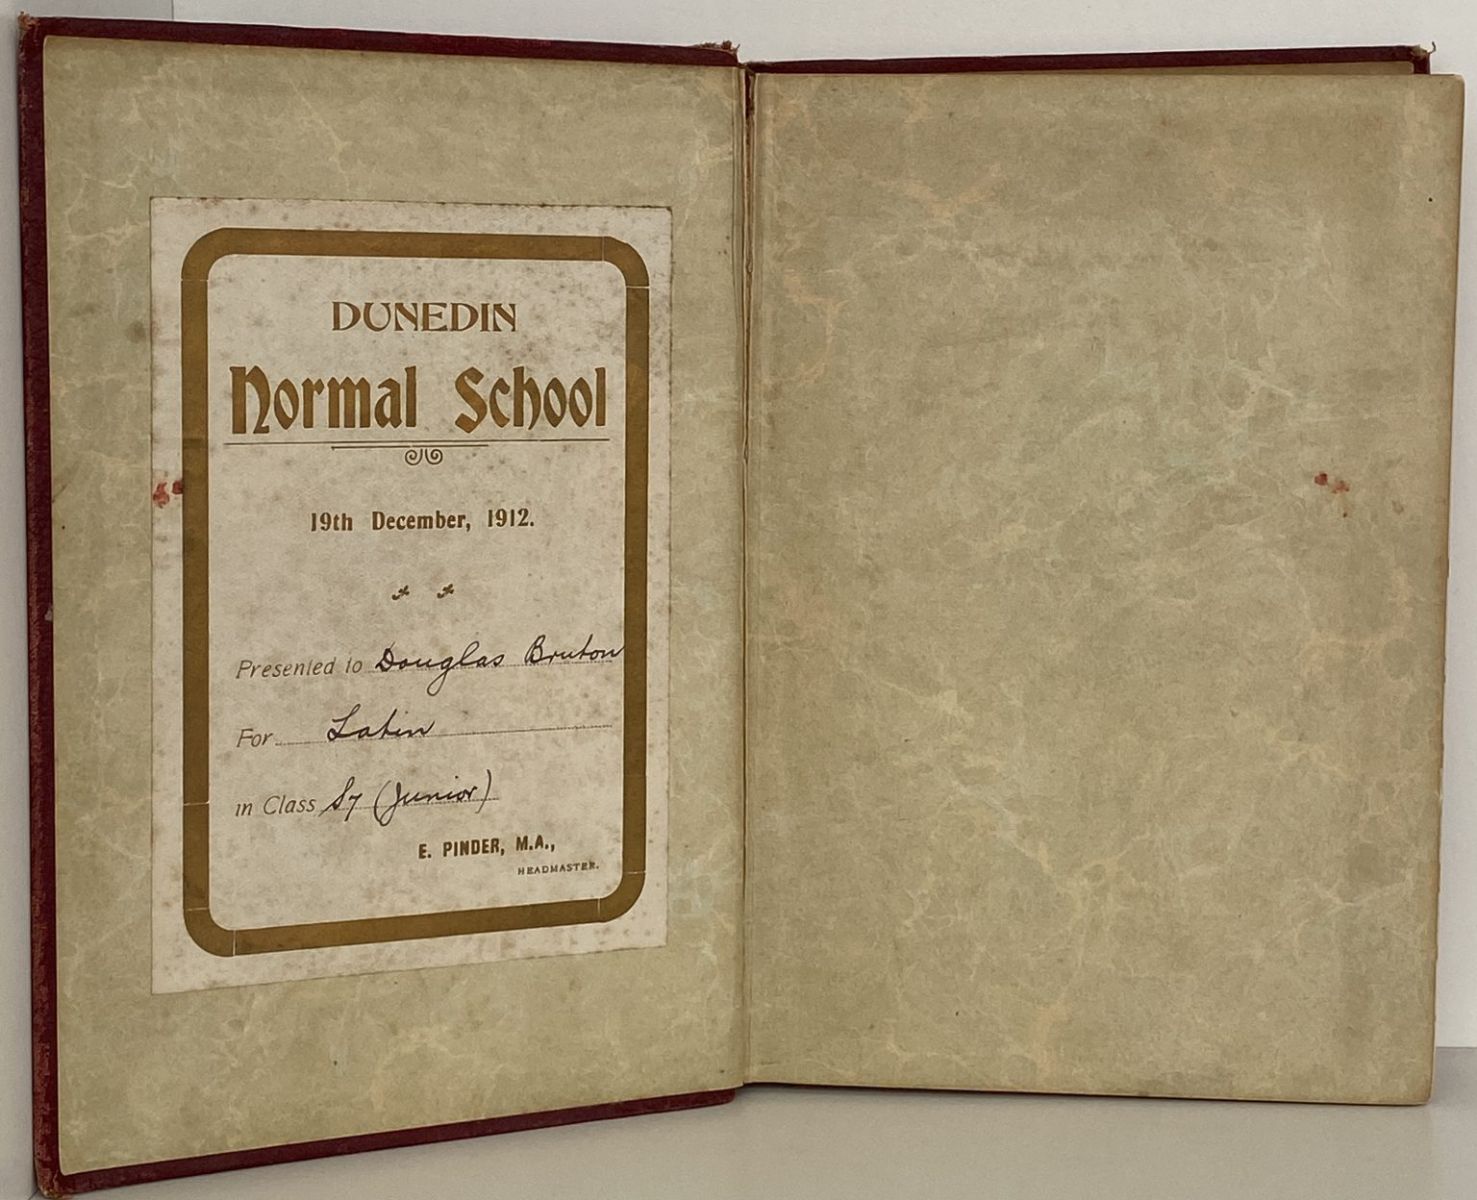 DUNEDIN
Normal School
19th December, 1912.
Presented to Douglas Bruton
For Latin
in Class S7 (Junior)
E. PINDER, M.A.,
HEADMASTER.